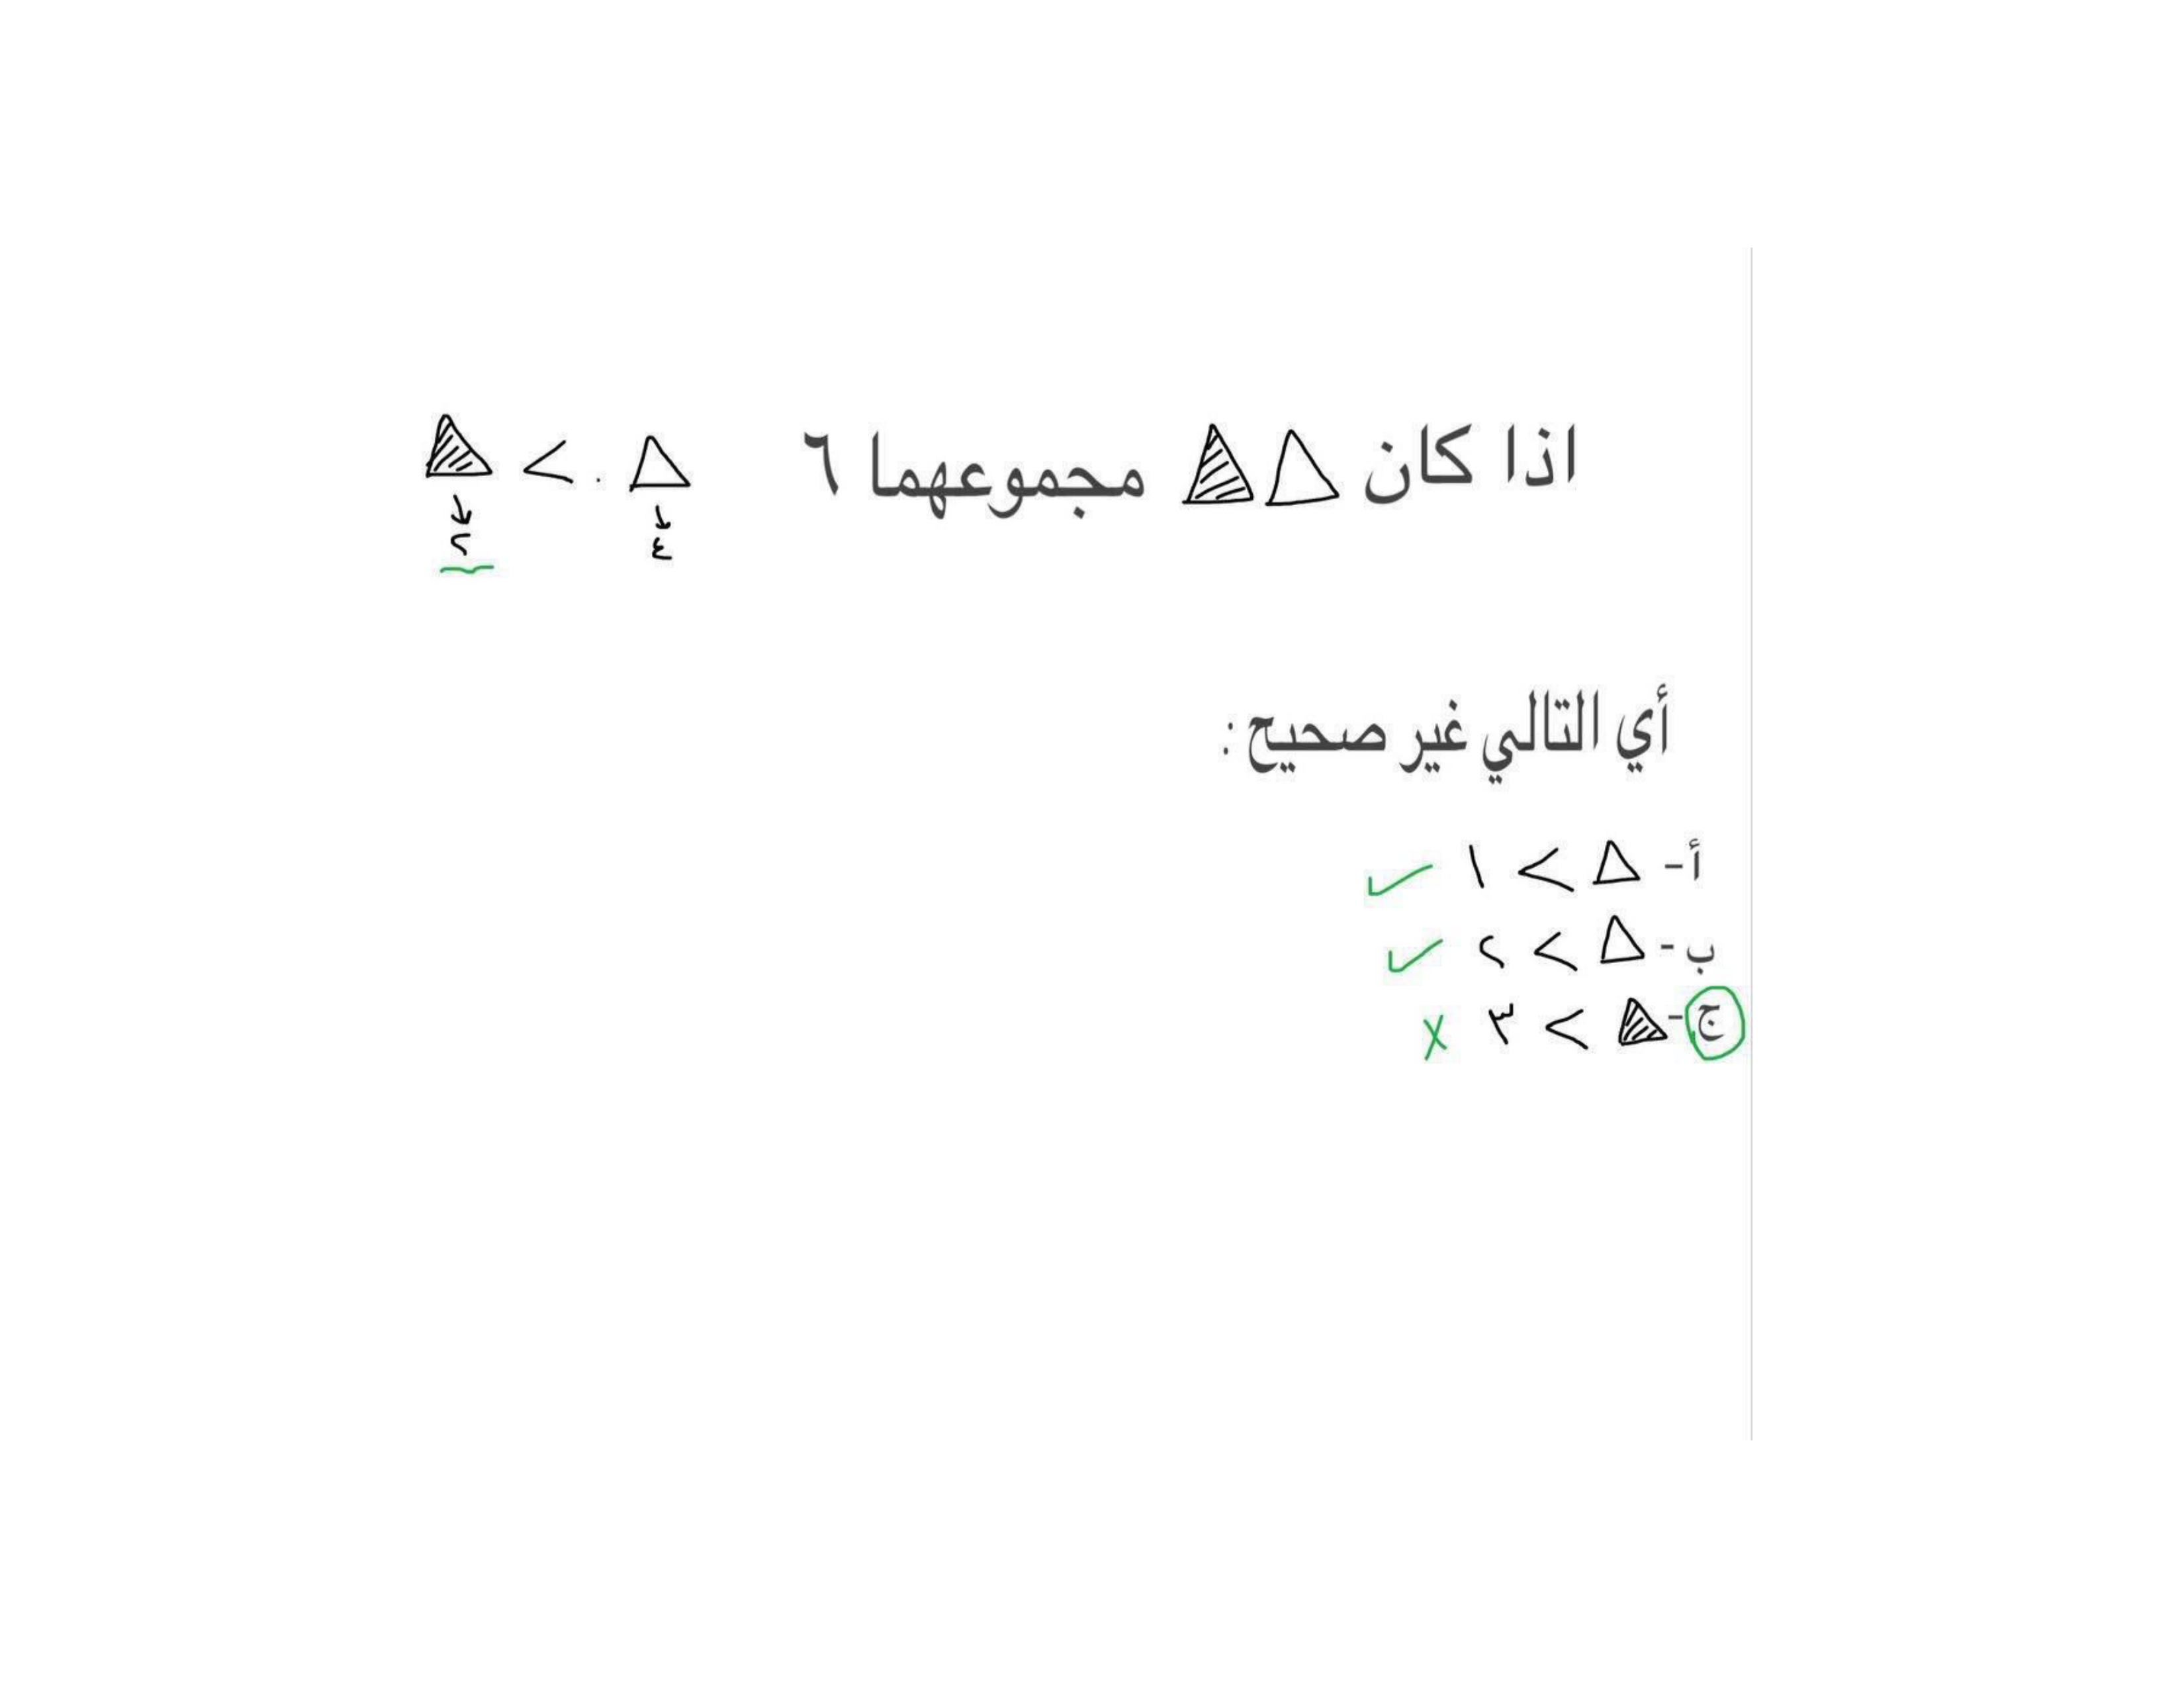 اذا كان △ ▲ مجموعهما ٦ △ > ▲
٤ ٢
أي التالي غير صحيح :
أ- △ > ١
ب- △ > ٢
ج- ▲ > ٣